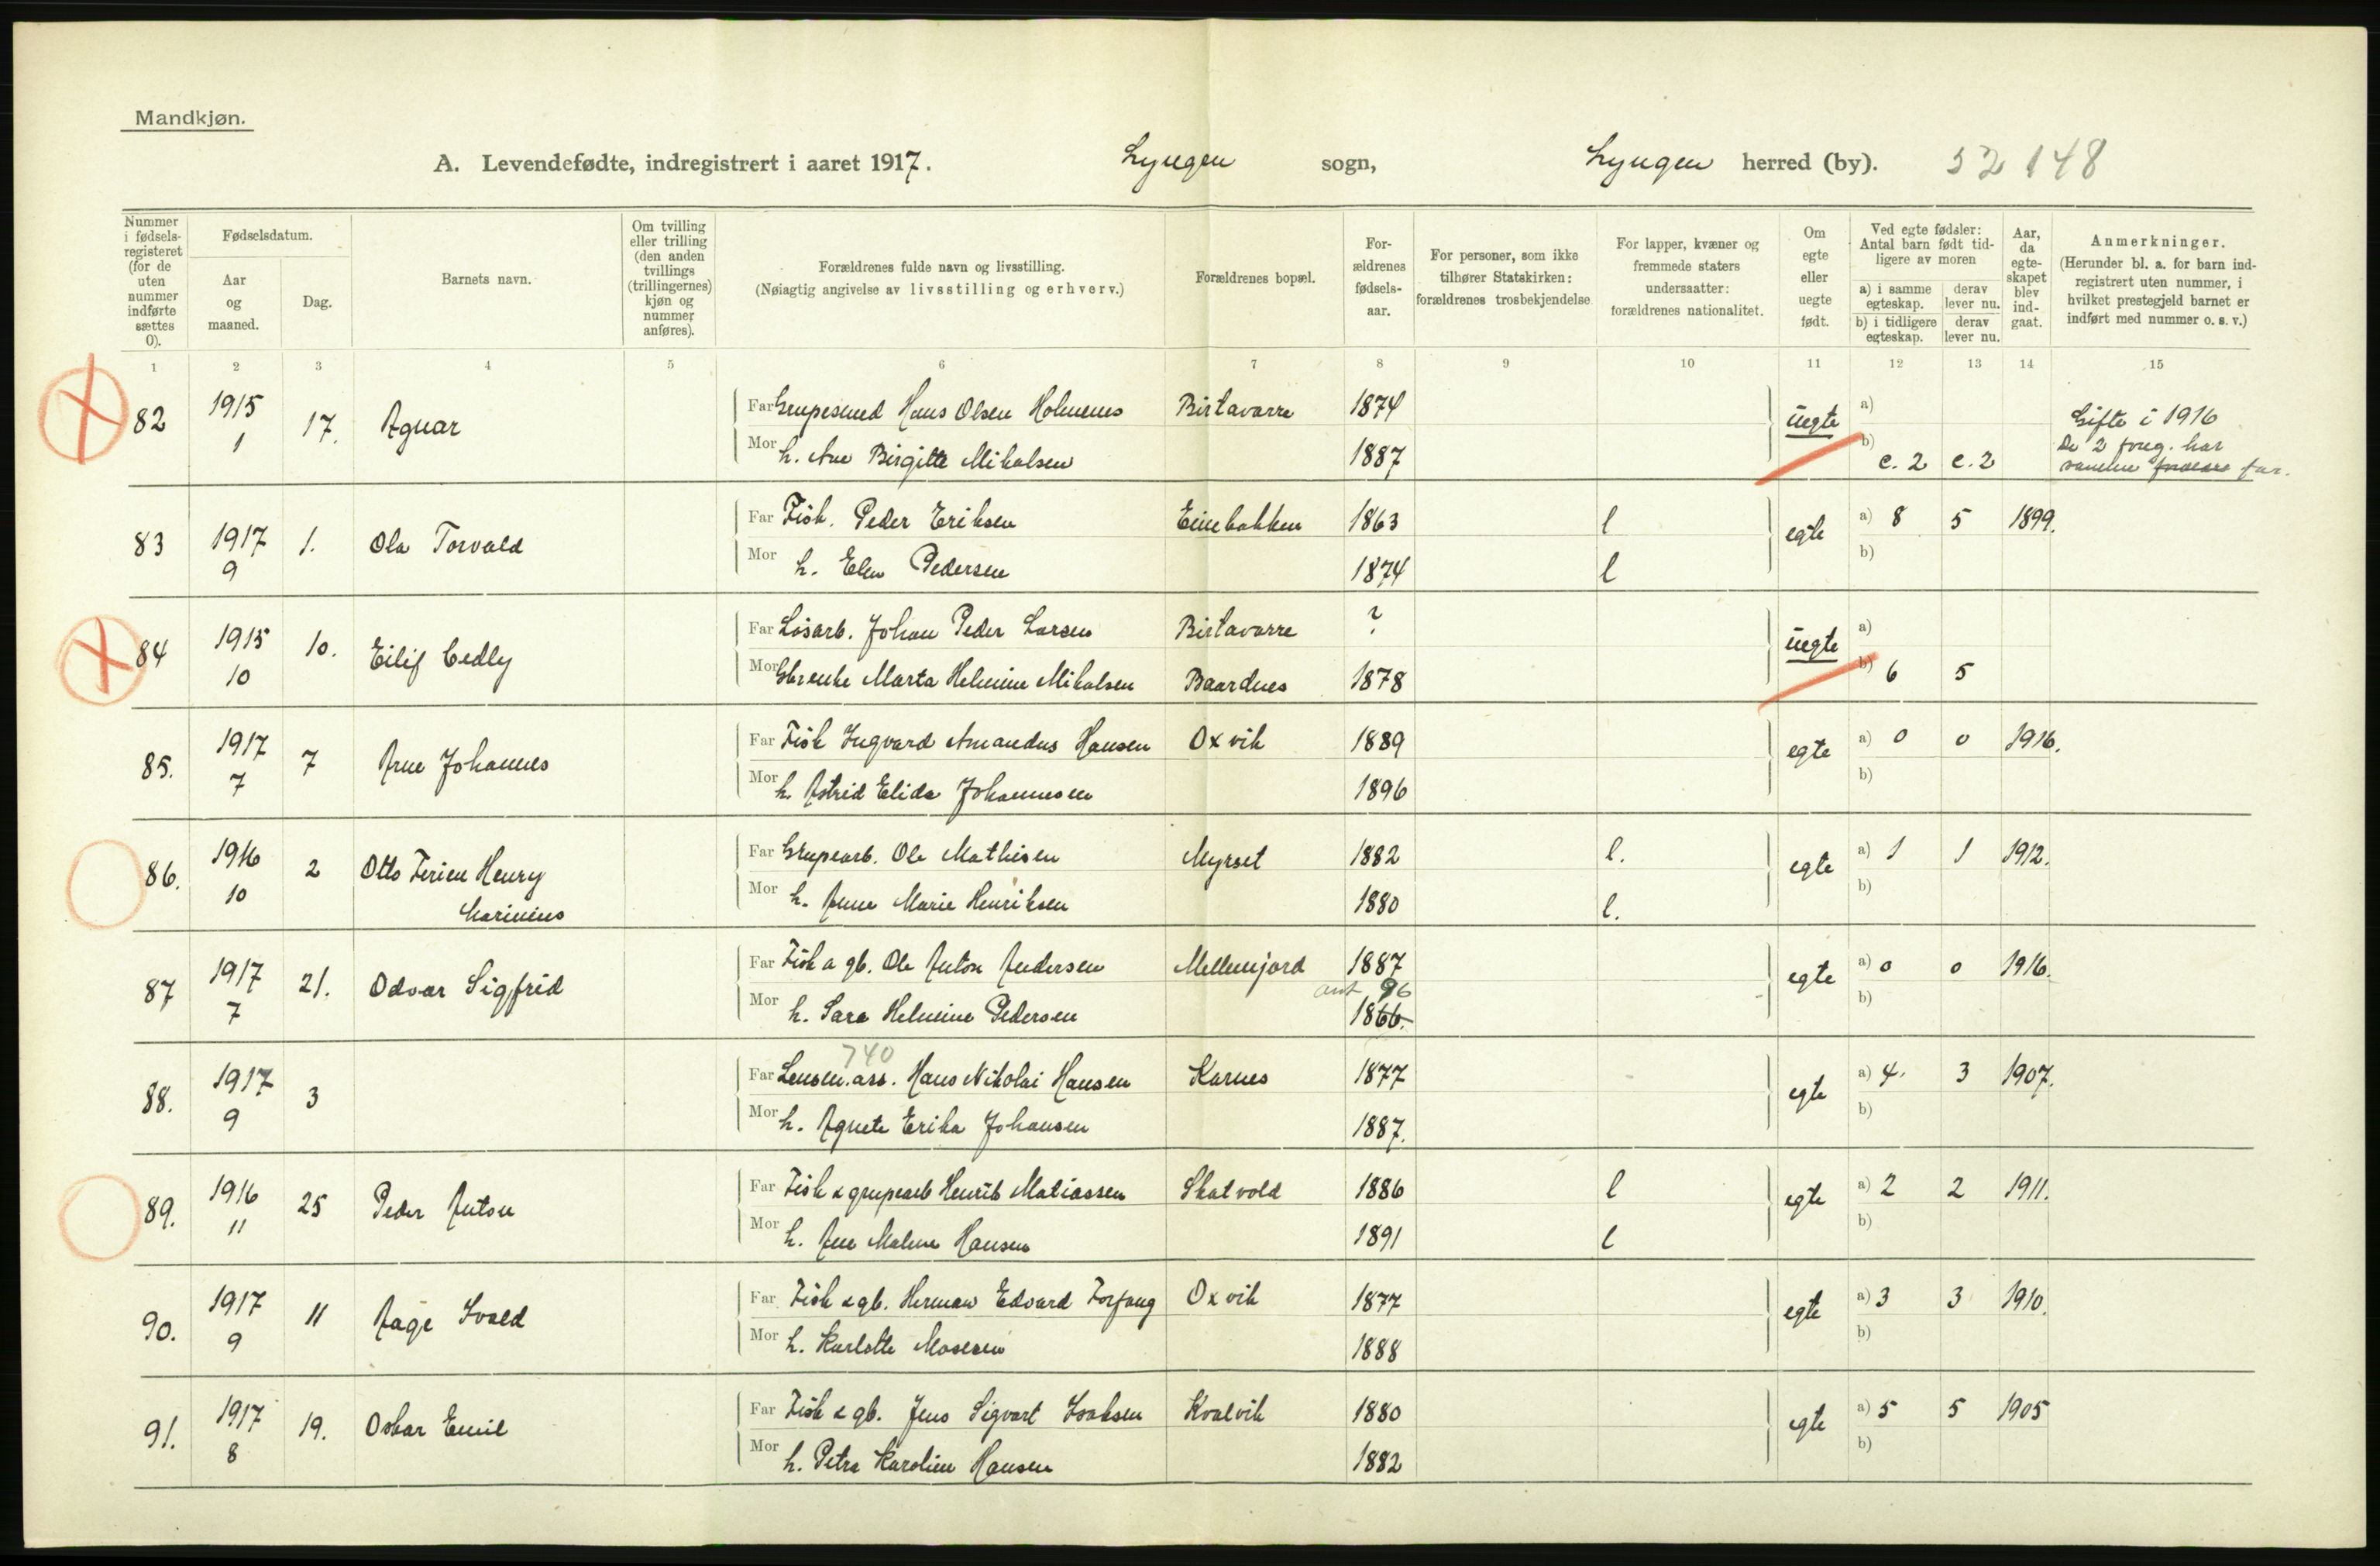 Mandkjøn.
A. Levendefødte, indregistrert i aaret 1917. Lyngen sogn, Lyngen herred (by). 52 148
Nummer i fødsels-registeret (for de uten nummer indførte sættes 0).
Fødselsdatum.
Aar og maaned.
Dag.
Barnets navn.
Om tvilling eller trilling (den anden tvillings (trillingernes) kjøn og nummer anføres).
Forældrenes fulde navn og livsstilling.
(Nøiagtig angivelse av livsstilling og erhverv.)
Forældrenes bopæl.
For-ældrenes fødsels-aar.
For personer, som ikke tilhører Statskirken: forældrenes trosbekjendelse.
For lapper, kvæner og fremmede staters undersaatter: forældrenes nationalitet.
Om egte eller uegte født.
Ved egte fødsler: Antal barn født tid-ligere av moren
a) i samme egteskap. derav lever nu.
b) i tidligere egteskap. derav lever nu.
Aar, da egte-skapet blev ind-gaat.
Anmerkninger.
(Herunder bl. a. for barn ind-registrert uten nummer, i hvilket prestegjeld barnet er indført med nummer o. s. v.)
1 2 3 4 5 6 7 8 9 10 11 12 13 14 15
82 1915 1 17. Agnar
Far Grupesmed Hans Olsen Holmenes Birtavarre 1874 uegte a) Gifte i 1916
Mor h. Ane Birgitte Mikalsen 1887 b) e. 2 e. 2 De 2 foreg. har samme far.
83 1917 9 1. Ola Torvald
Far Fisk. Peder Eriksen Einebakken 1863 l egte a) 8 5 1899.
Mor h. Elen Pedersen 1874 l b)
84 1915 10 10. Eilif Cedly
Far Løsarb. Johan Peder Larsen Birtavarre ? uegte a)
Mor Gbr.enke Marta Helmine Mikalsen Baardnes 1878 b) 6 5
85. 1917 7 7 Arne Johannes
Far Fisk Ingvard Amandus Hansen Oxvik 1889 egte a) 0 0 1916.
Mor h. Astrid Elida Johannesen 1896 b)
86. 1916 10 2 Otto Ferien Henry Marinius
Far Grupearb. Ole Mathisen Myrset 1882 l. egte a) 1 1 1912.
Mor h. Anne Marie Henriksen 1880 l. b)
87 1917 7 21. Odvar Sigfrid
Far Fisk a gb. Ole Anton Andersen Mellemjord 1887 egte a) 0 0 1916.
ant 96
Mor h. Sara Helmine Pedersen 1866. b)
740
88. 1917 9 3
Far Lensm.ass. Hans Nikolai Hansen Karnes 1877 egte a) 4. 3 1907.
Mor h. Agnete Erika Johansen 1887. b)
89. 1916 11 25 Peder Anton
Far Fisk & grupearb Henrik Matiassen Skatvold 1886 l egte a) 2 2 1911.
Mor h. Ane Malene Hansen 1891 l b)
90. 1917 9 11 Aage Ivald
Far Fisk & gb. Herman Edvard Forfang Oxvik 1877 egte a) 3 3 1910.
Mor h. Karlotte Mosesen 1888 b)
91. 1917 8 19. Oskar Emil
Far Fisk & gb. Jens Sigvart Isaksen Kvalvik 1880 egte a) 5 5 1905
Mor h. Petra Karoline Hansen 1882 b)